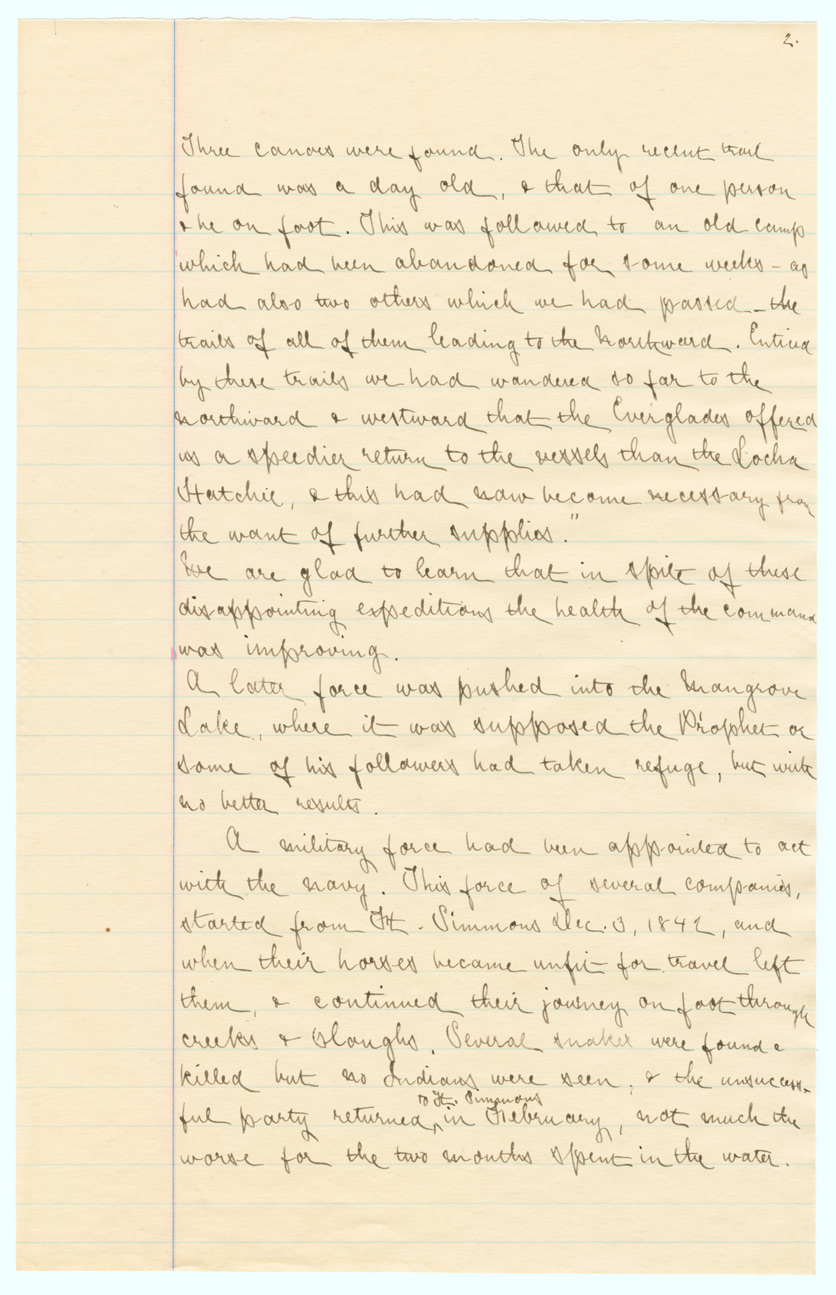 2.
Three canoes were found. The only recent trail
found was a day old, & that of one person
& he on foot. This was followed to an old camp
which had been abandoned for some weeks - as
had also two others which we had passed - the
trails of all of them leading to the Northward. Enticed
by these trails we had wandered so far to the
northward & westward that the Everglades offered
us a speedier return to the vessels than the Locha
Hatchie, & this had now become necessary from
the want of further supplies."
We are glad to learn that in spite of these
disappointing expeditions the health of the command
was improving.
A later force was pushed into the Mangrove
Lake, where it was supposed the Prophet or
some of his followers had taken refuge, but with
no better results.
A military force had been appointed to act
with the navy. This force of several companies,
started from Ft. Simmons Dec. 3, 1842, and
when their horses became unfit for travel left
them, & continued their journey on foot through
creeks & sloughs. Several snakes were found &
killed but no Indians were seen; & the unsuccess-
to Ft. Simmons
ful party returned in February, not much the
worse for the two months spent in the water.